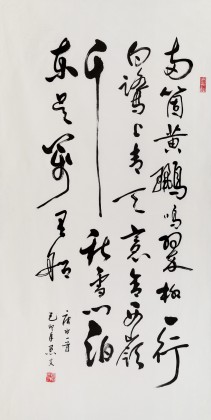 两箇黄鸝鸣翠柳一行
白鹭上青天窗含西嶺
千秋雪门泊
东吴万里船
己卯年